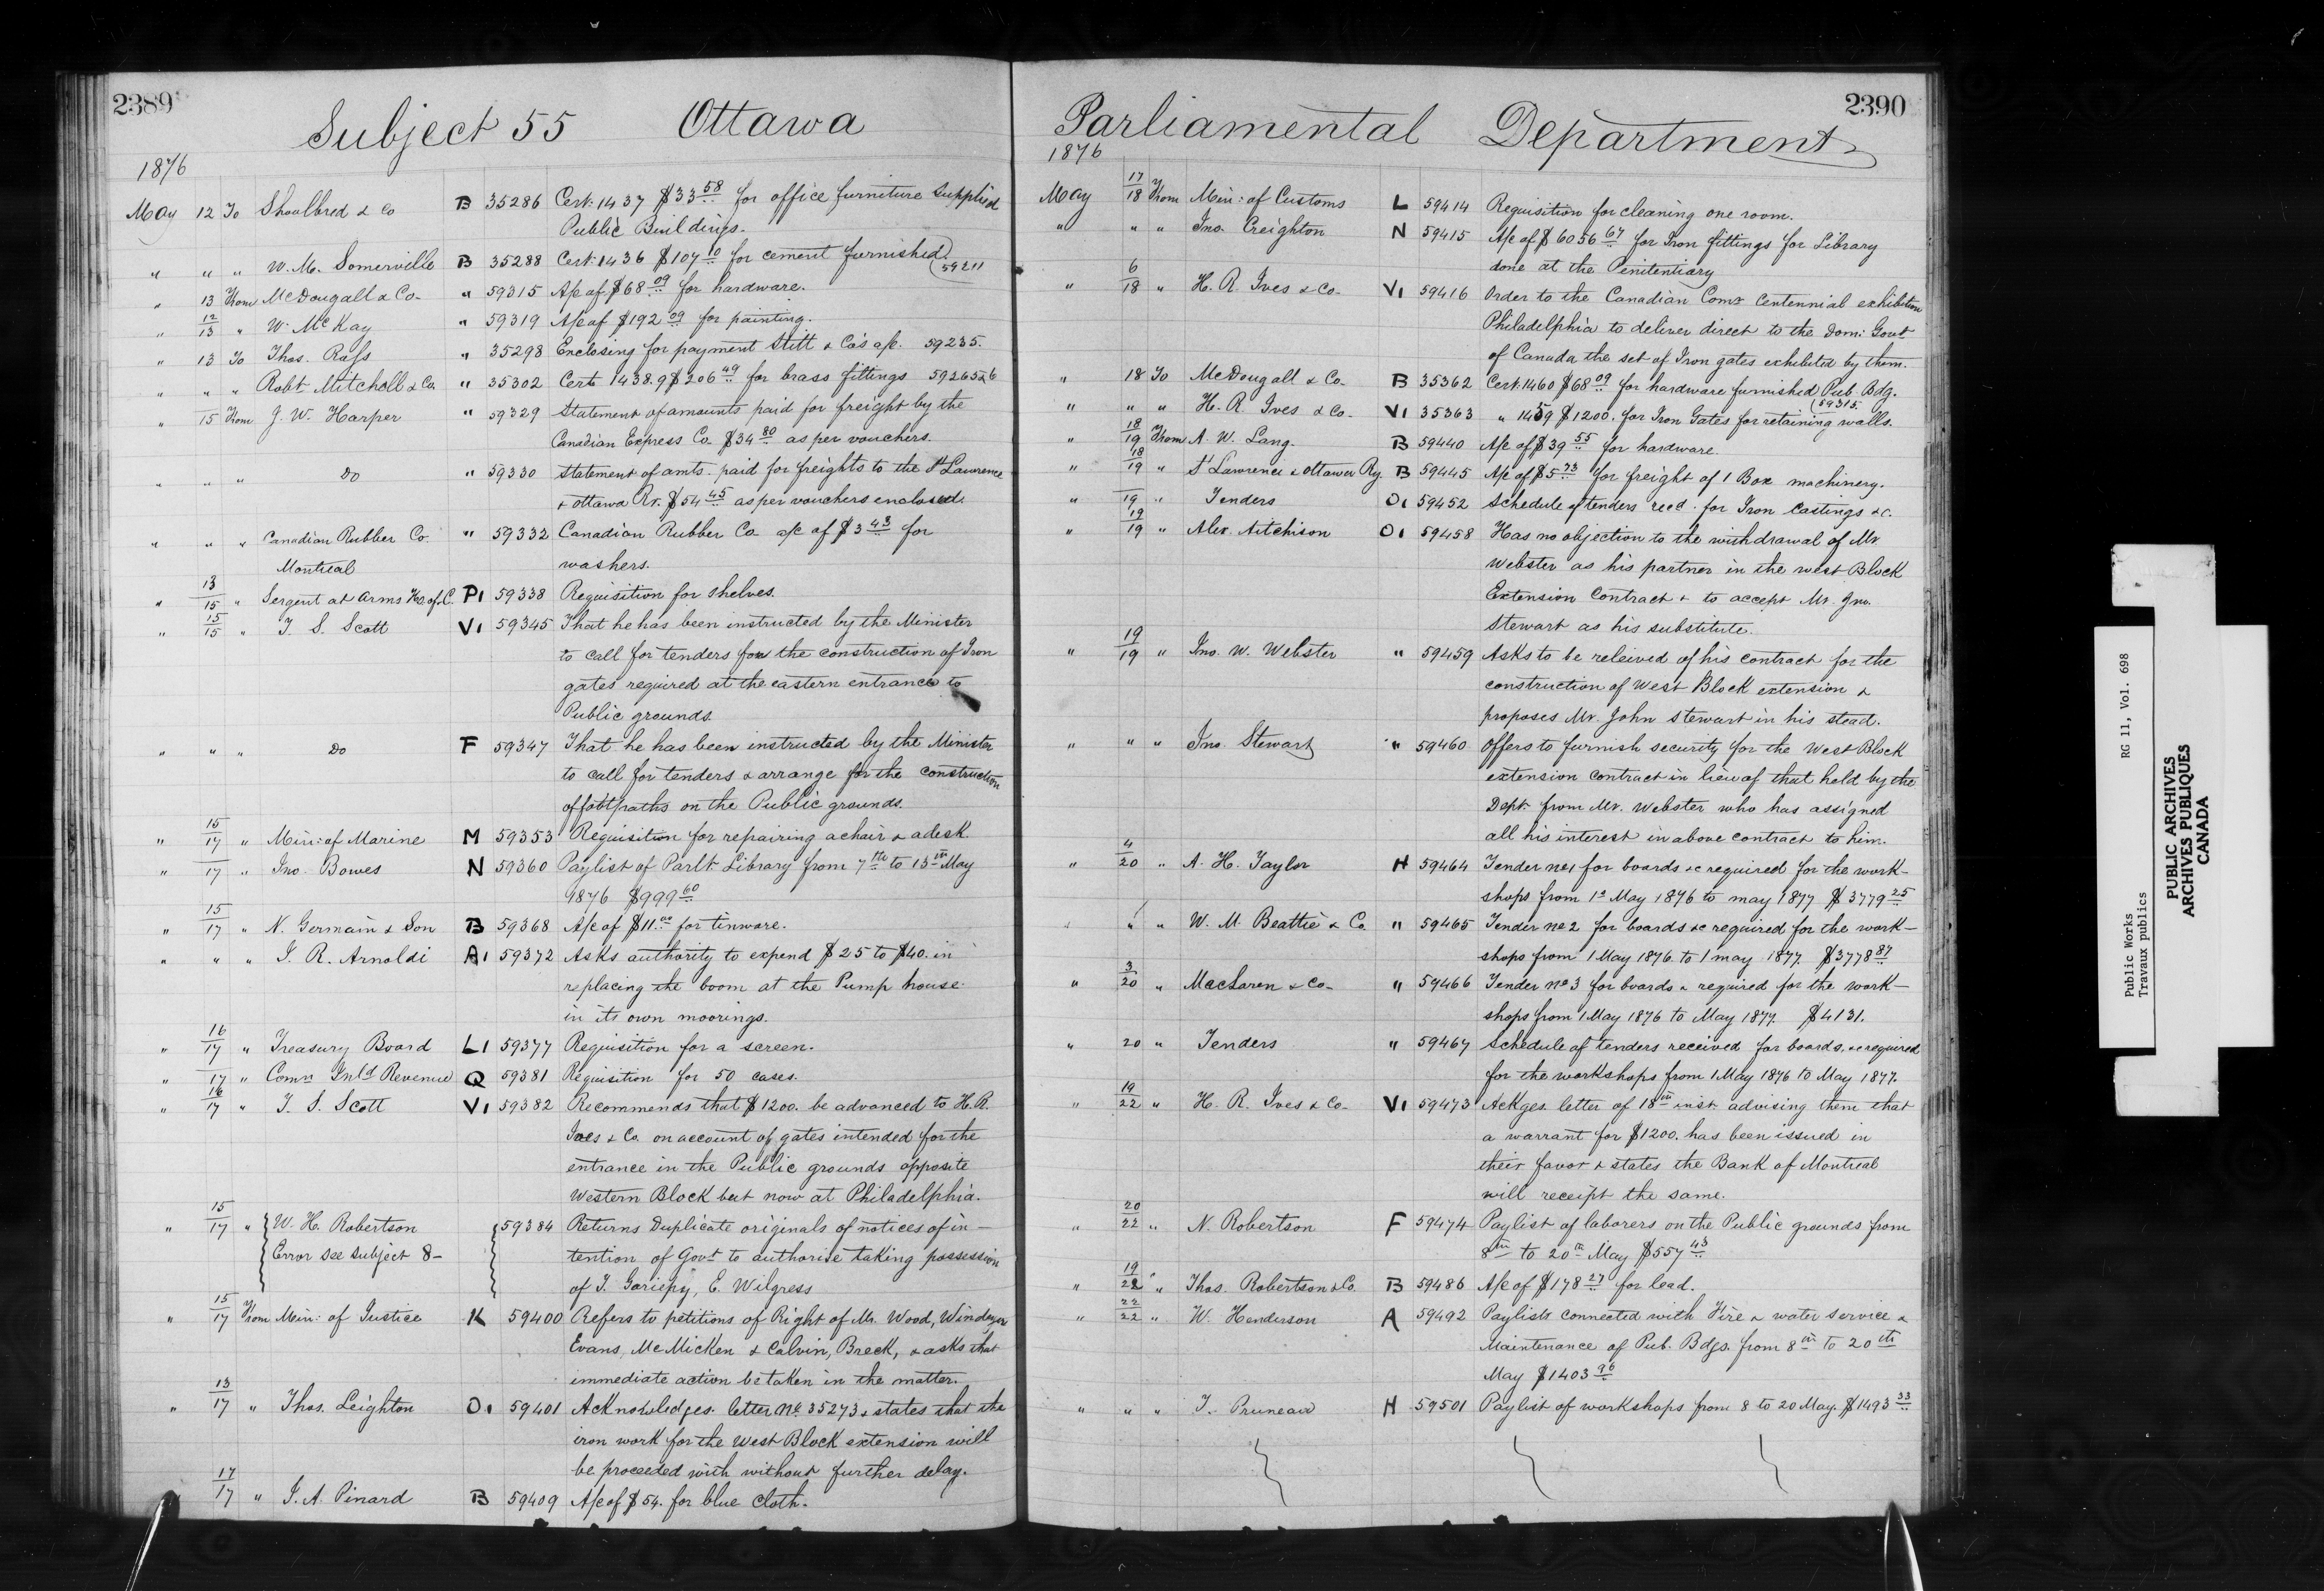 2389
Subject 55 Ottawa
1876
May 12 To Shoolbred & Co B 35286 Cert. 1437 $33 58 for office furniture supplied
Public Buildings.
" " " W. M. Somerville B 35288 Cert. 1436 $107 10 for cement furnished 59211
" 13 From McDougall & Co. " 59315 A/c of $68 09 for hardware.
" 12/13 " W. McKay " 59319 A/c of $192 09 for painting.
" 13 To Thos. Ross " 35298 Enclosing for payment Stitt & Co's a/c. 59235.
" " " Robt Mitchell & Co. " 35302 Certs 1438.9 $206 49 for brass fittings 59265&6
" 15 From J. W. Harper " 59329 Statement of amounts paid for freight by the
Canadian Express Co. $34 80 as per vouchers.
" " " Do " 59330 Statement of amts. paid for freights to the St Lawrence
& Ottawa Ry. $54 45 as per vouchers enclosed.
" " " Canadian Rubber Co. " 59332 Canadian Rubber Co a/c of $3 43 for
Montreal washers.
" 13/15 " Sergent at Arms Ho. of C. P1 59338 Requisition for shelves.
" 15/15 " T. S. Scott V1 59345 That he has been instructed by the Minister
to call for tenders for the construction of Iron
gates required at the eastern entrance to
Public grounds.
" " " Do F 59347 That he has been instructed by the Minister
to call for tenders & arrange for the construction
of footpaths on the Public grounds.
" 15/17 " Min: of Marine M 59353 Requisition for repairing a chair & a desk.
" 17 " Jno. Bowes N 59360 Paylist of Parlt. Library from 7th to 13th May
1876 $999 60
" 15/17 " N. Germain & Son B 59368 A/c of $11 00 for tinware.
" " " J. R. Arnoldi A1 59372 Asks authority to expend $25 to $40. in
replacing the boom at the Pump house
in its own moorings.
" 16/17 " Treasury Board L1 59377 Requisition for a screen.
" 17 " Comr. Inld Revenue Q 59381 Requisition for 50 cases.
" 16/17 " T. S. Scott V1 59382 Recommends that $1200. be advanced to H. R.
Ives & Co. on account of gates intended for the
entrance in the Public grounds opposite
Western Block but now at Philadelphia.
" 15/17 " W. H. Robertson 59384 Returns Duplicate originals of notices of in-
Error see subject 8- tention of Govt to authorise taking possession
of T. Gariepy, E. Wilgress
" 15/17 From Min: of Justice K 59400 Refers to petitions of Right of Mr. Wood, Windeyer
Evans, McMicken & Calvin, Breck, & asks that
immediate action be taken in the matter.
" 13/17 " Thos. Leighton O1 59401 Acknowledges letter No. 35273 & states that the
iron work for the West Block extension will
be proceeded with without further delay.
" 17/17 " J. A. Pinard B 59409 A/c of $54. for blue cloth.
2390
Parliamental Department
1876
May 17/18 From Min: of Customs L 59414 Requisition for cleaning one room.
" " " Jno. Creighton N 59415 A/c of $6056 67 for Iron fittings for Library
done at the Penitentiary
" 6/18 " H. R. Ives & Co. V1 59416 Order to the Canadian Comr Centennial exhibition
Philadelphia to deliver direct to the Dom: Govt
of Canada the set of Iron gates exhibited by them.
" 18 To McDougall & Co. B 35362 Cert. 1460 $68 09 for hardware furnished Pub. Bdg.
59315.
" " " H. R. Ives & Co. V1 35363 " 1459 $1200. for Iron Gates for retaining walls.
" 18/19 From A. W. Lang. B 59440 A/c of $39 55 for hardware.
" 18/19 " St Lawrence & Ottawa Ry. B 59445 A/c of $5 73 for freight of 1 Box machinery.
" 19 " Tenders O1 59452 Schedule of tenders recd. for Iron Castings &c.
" 19/19 " Alex. Aitchison O1 59458 Has no objection to the withdrawal of Mr.
Webster as his partner in the West Block
Extension Contract & to accept Mr. Jno.
Stewart as his substitute.
" 19/19 " Jno. W. Webster " 59459 Asks to be releived of his contract for the
construction of West Block extension &
proposes Mr. John Stewart in his stead.
" " " Jno. Stewart " 59460 Offers to furnish security for the West Block
extension contract in lieu of that held by the
Dept. from Mr. Webster who has assigned
all his interest in above contract to him.
" 4/20 " A. H. Taylor H 59464 Tender No 1 for boards &c required for the work-
shops from 1st May 1876 to may 1877 $3779 25
" " " W. M. Beattie & Co. " 59465 Tender No 2 for boards &c required for the work-
shops from 1 May 1876 to 1 may 1877. $3778 87
" 3/20 " MacLaren & Co. " 59466 Tender No 3 for boards & required for the work-
shops from 1 May 1876 to May 1877. $4131.
" 20 " Tenders " 59467 Schedule of tenders received for boards, &c required
for the workshops from 1 May 1876 to May 1877.
" 19/22 " H. R. Ives & Co. V1 59473 Ackges. letter of 18th inst. advising them that
a warrant for $1200. has been issued in
their favor & states the Bank of Montreal
will receipt the same.
" 20/22 " N. Robertson F 59474 Paylist of laborers on the Public grounds from
8th to 20th May $557 43
" 19/22 " Thos. Robertson & Co. B 59486 A/c of $178 27 for lead.
" 22/22 " W. Henderson A 59492 Paylists connected with Fire & water service &
Maintenance of Pub. Bdgs. from 8th to 20th
May $1403 96
" " " T. Pruneau H 59501 Paylist of workshops from 8 to 20 May. $1493 33
Public Works RG 11, Vol. 698
Travaux publics
PUBLIC ARCHIVES
ARCHIVES PUBLIQUES
CANADA